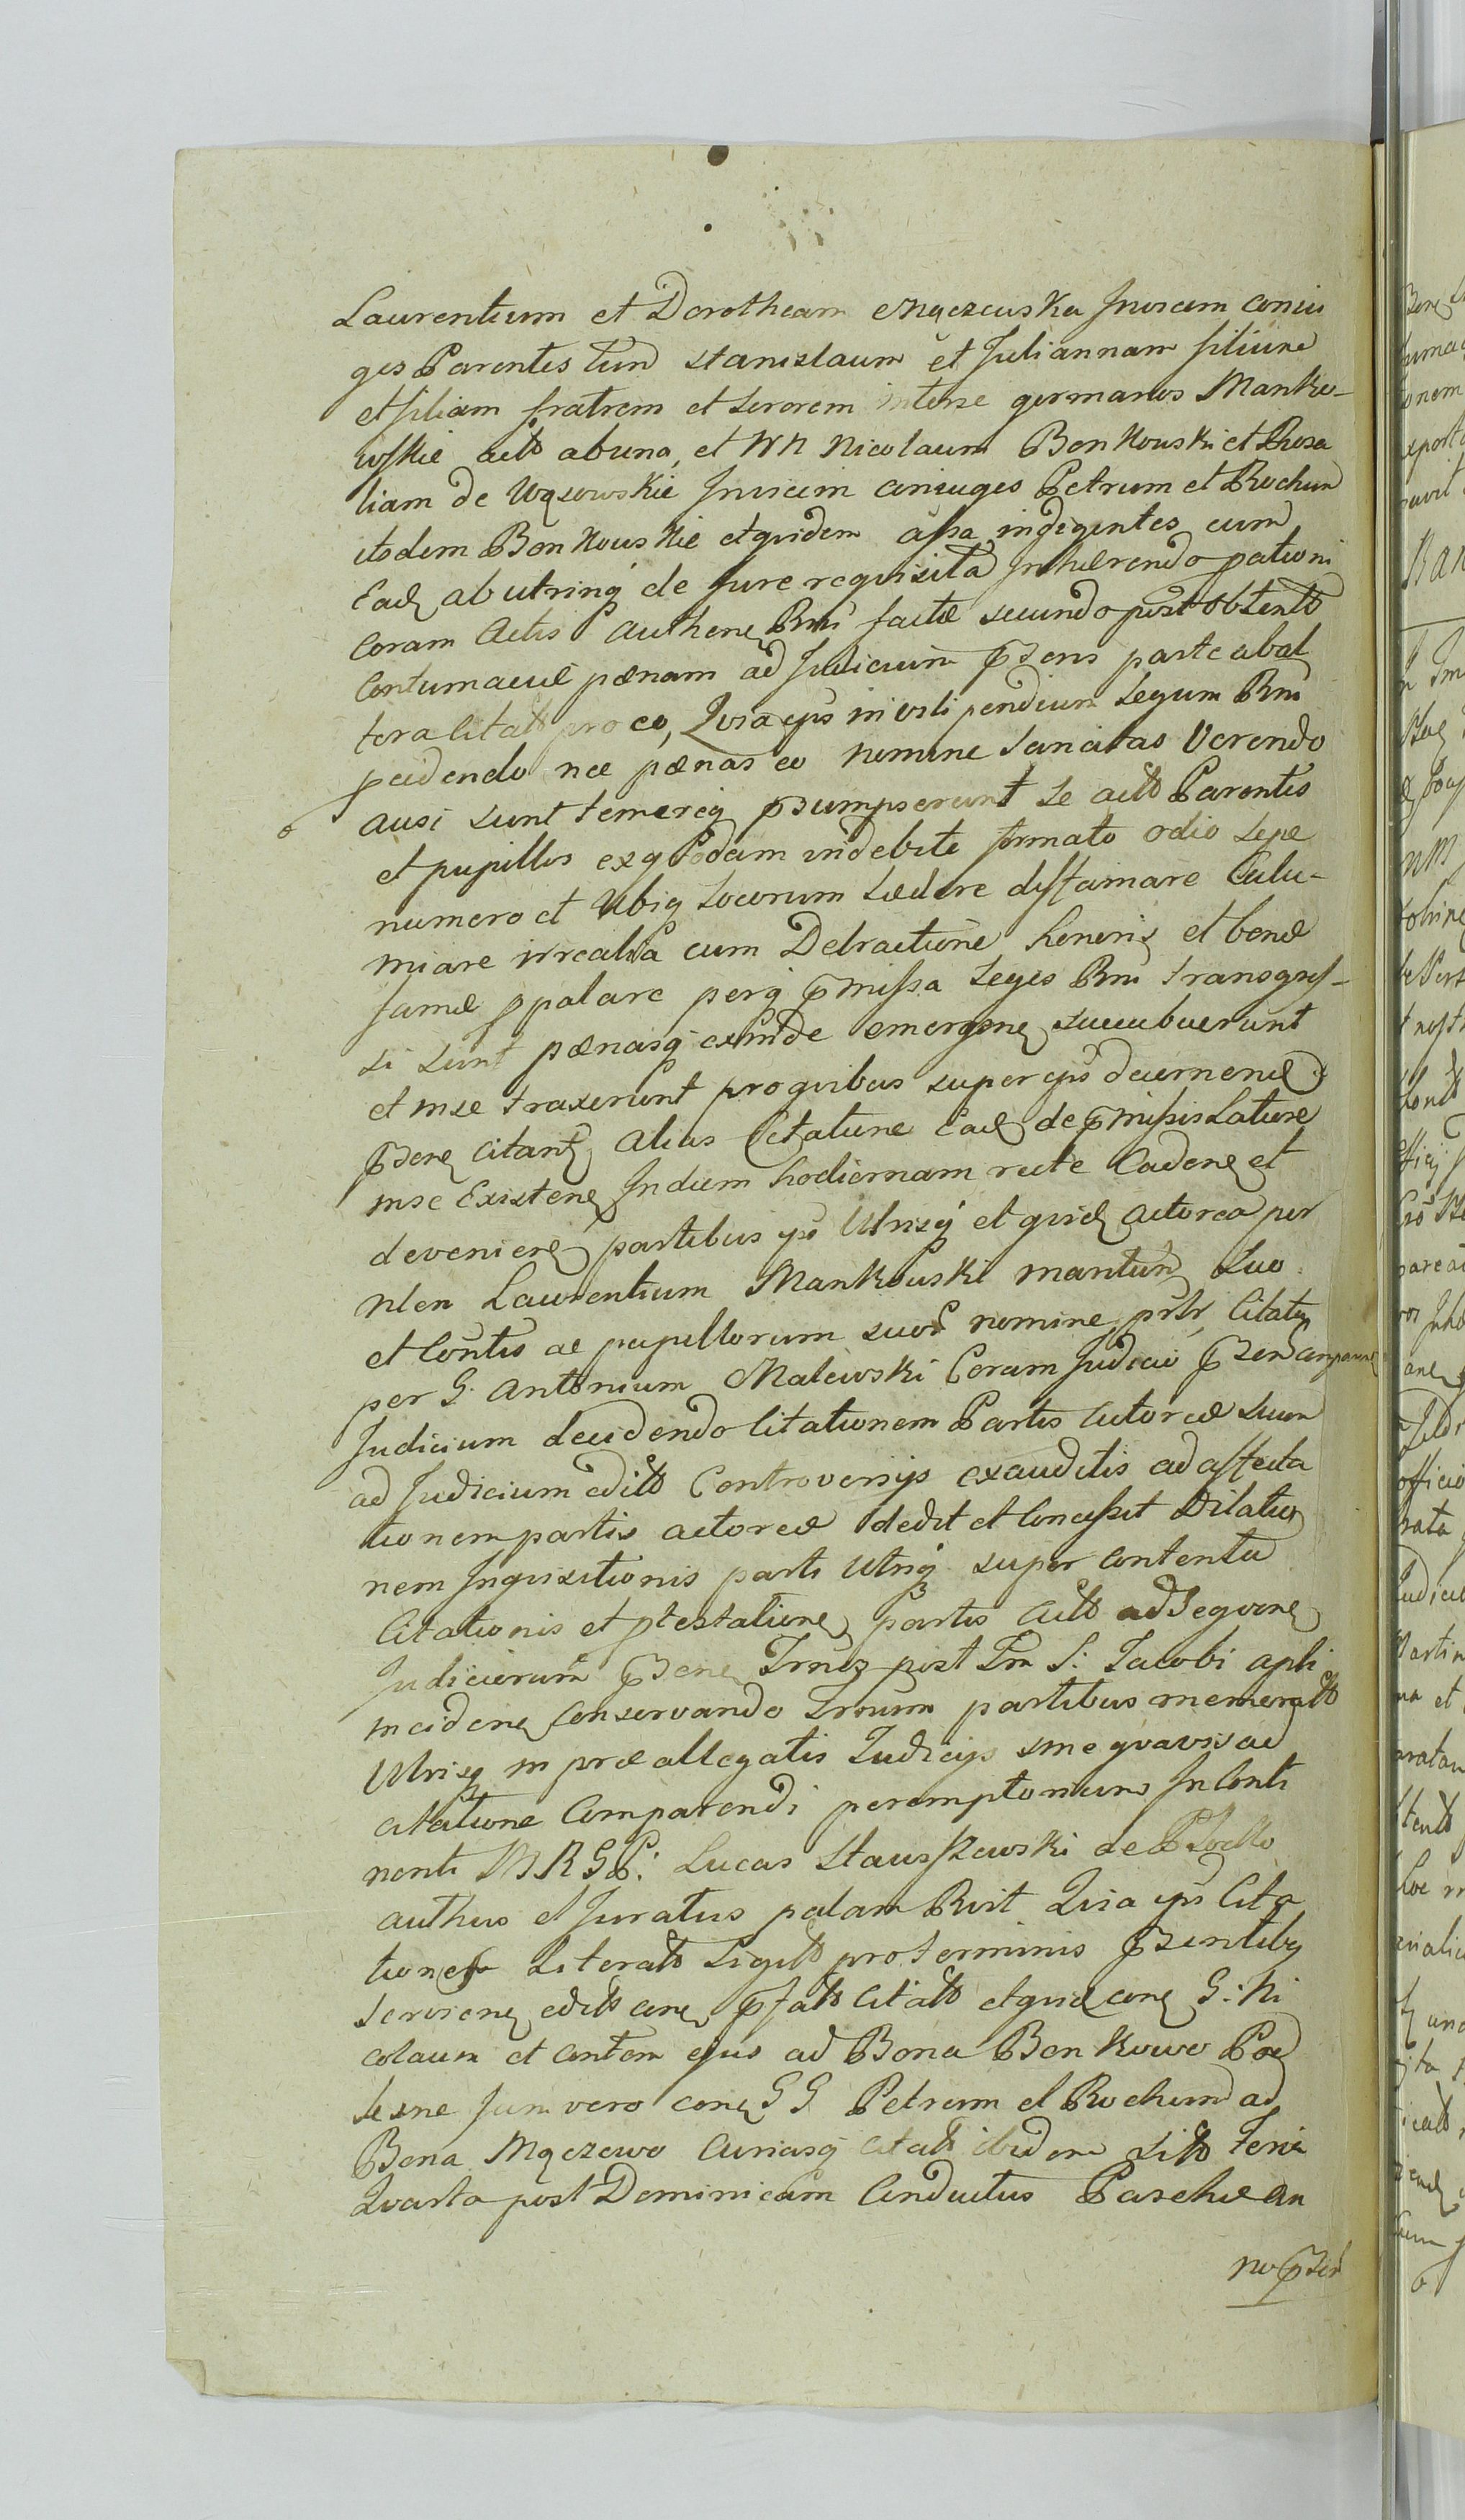 Laurentium et Dorotheam Mączewska Invicem coniu
ges Parentes tum Stanislaum et Juliannam filium
et filiam fratrem et sororem interse germanos Manko-
wskie actt ab una, et NN Nicolaum Bonkowski et Rosa
liam de Wąsowskie Invicem coniuges Petrum et Rochum
itodem Bonkowskie etquidem assa indigentes cum
Ead ab utrinq de Jure requisita Inhaerendo pationi
Coram Actis authen Rni factae secundo post obtentt
Contumaciae paenam ad Judicium pzens parte ab al
tera citatt pro eo, Quia ipsi in vili pendium Legum Rni
pcidendo nec paenas eo nomine sancitas Verendo
ausi sunt temereq pzumpserunt Se actt Parentes
et pupillos exquodam indebite formato odio sepe
numero et Ubiq Locorum Laedere diffamare Calu-
miare irrealia cum Detractione honoris et bonae
famae ppalare perq pmissa Leges Rni transgres-
si sunt paenasq exinde emergen succubuerunt
et in se traxerunt pro quibus super ipsis decernend
pzen citant alias Citatione Ead de pmissis Latiore
in se Existen In diem hodiernam recte Caden et
devenien partibus ipsis Utrisq et quid actorea per
Nlen Laurentium Mankowski maritum suo
et Contis ac pupillorum suor nomine, prlr Citata
per G. Antonium Malewski Coram Judicio pzen Comparen
Judicium decidendo Citationem Partis Actoreae suum
ad Judicium editt Controversijs exauditis ad affecta
tionem partis actoreae dedit et Concessit Dilatio
nem Inquisitionis parti Utriq super contenta
Citationis et ptestatione partis actt ad Sequen
Judiciorum pzen Trnos post Fm S: Jacobi apli
inciden Conservando Trnum partibus memoratt
Utrisq in praeallegatis Judicijs sine quavis ad
citatione Comparendi peremptorium In Conti
nenti M R G P: Lucas Stawszewski de Plocko
authus et Juratus palam Rvit Quia ipse Cita
tiones Literatt Sigitt pro terminis pzentibs
servien editt con pfatt Citatt etquid con G: Ni
colaum et Contem ejus ad Bona Bonkowo Pod
lesne tum vero con GG Petrum et Rochum ad
Bona Mączewo Curiasq citatt ibidem Sitt Feria
Quarta post Dominicam Conductus Paschae An
no pzen